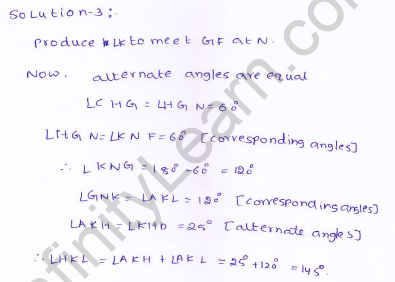 Solution-3:
Produce LK to meet GF at N.
Now. alternate angles are equal
∠CHG = ∠HGN = 60°
∠HGN = ∠KNF = 60° [corresponding angles]
∴ ∠KNG = 180° - 60° = 120°
∠GNK = ∠AKL = 120° [corresponding angles]
∠AKH = ∠KHD = 25° [alternate angles]
∴ ∠HKL = ∠AKH + ∠AKL = 25° + 120° = 145°.
infinityLearn.com